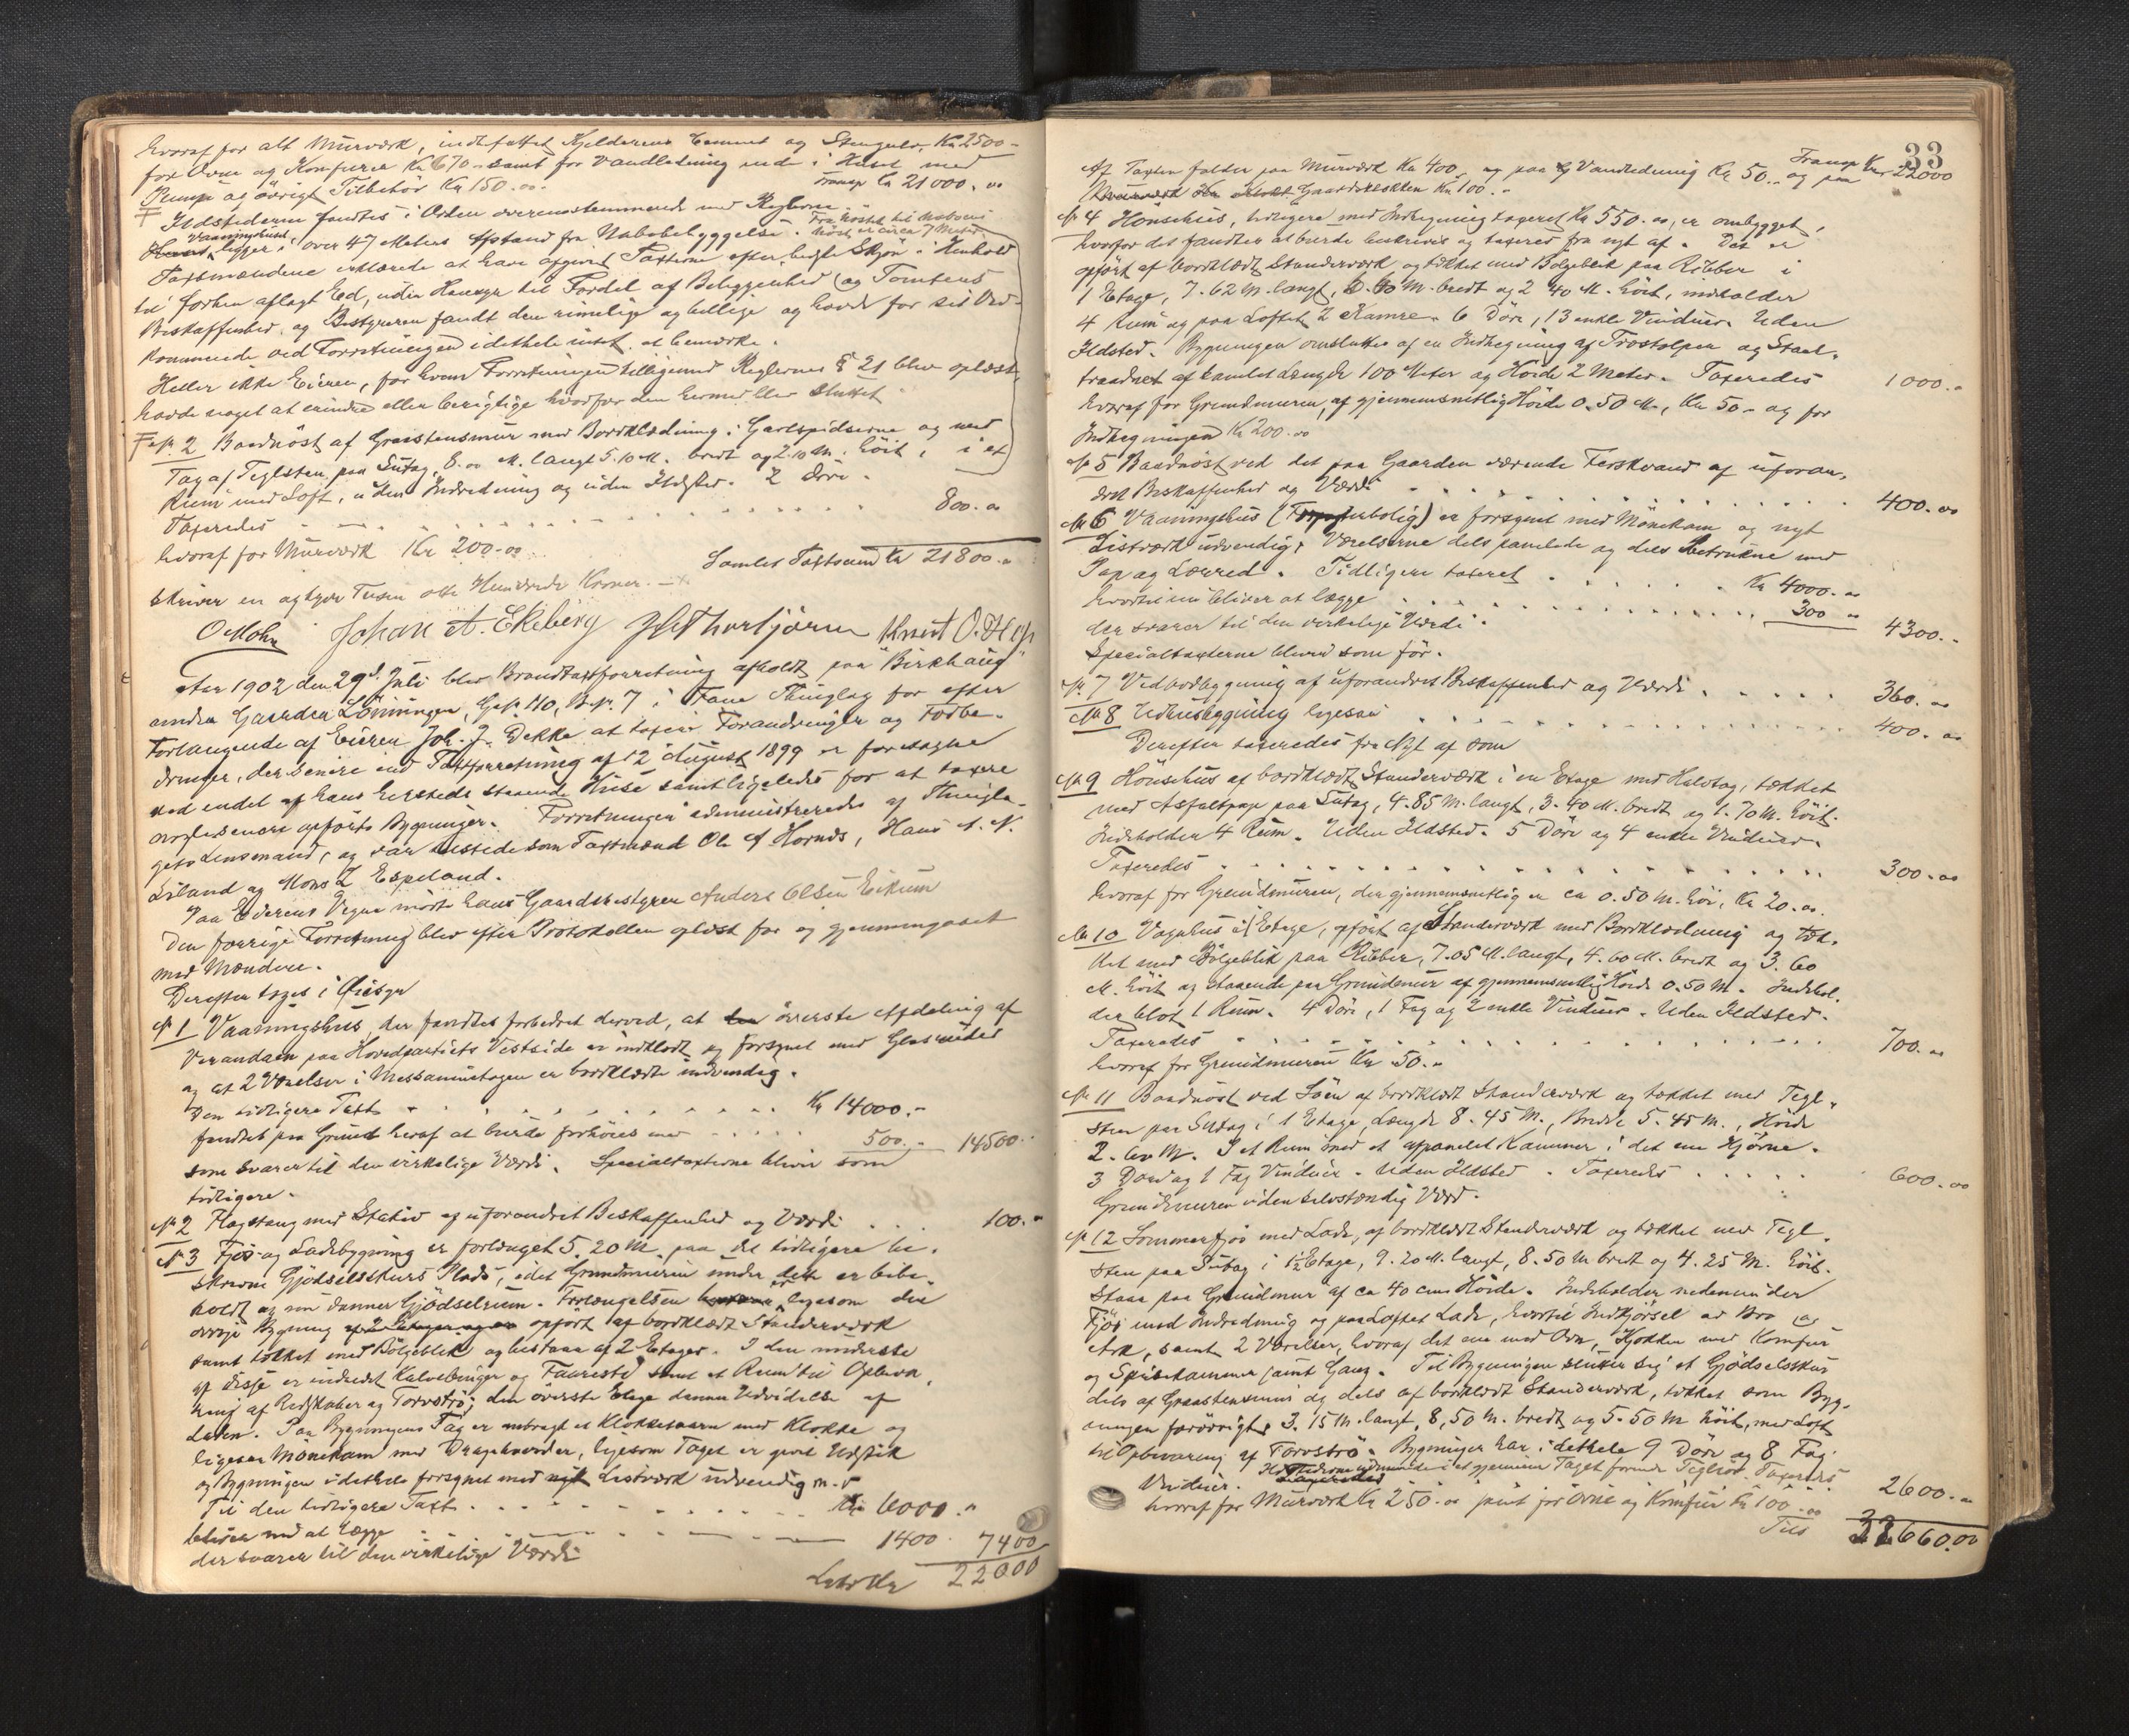 hvoraf for alt Murværk, indbefattet Kjelderens Cement og Stengulv, Kr 2500 -
for Ovne og Komfurer Kr 670 - samt for Vandledning ind i Huset med
Pumpe og øvrigt Tilbehør Kr 150.00.
Transp Kr 21000.00
Ildstederne fandtes i Orden overensstemmende med Reglerne.
Vaaningshuset ligger i over 47 Meters Afstand fra Nabobebyggelse. Fra Nøstet til Naboens Nøst er circa 7 Meter.
Taxtmændene erklærede at have afgivet Taxterne efter bedste Skjøn i Henhold
til forhen aflagt Ed, uden Hensyn til Fordel af Beliggenhed og Tomtens
Beskaffenhed, og Bestyreren fandt den rimelige og billige og havde for sit Ved-
kommende ved Forretningen i dethele intet at bemærke.
Heller ikke Eieren, for hvem Forretningen tilligemed Reglernes § 21 blev oplæst,
havde noget at erindre eller berigtige hvorfor den hermed blev sluttet
№ 2 Baadnøst af Graastensmur med Bordklædning i Gavlspidserne og med
Tag af Teglsten paa Sutag, 8.00 M. langt 5.10 M. bredt og 2.10 M. høit, i et
Rum med Loft, uden Indredning og uden Ildsted. 2 Døre.
Taxeredes 800.00
hvoraf for Murværk Kr 200.00
Samlet Taxtsum Kr 21800.00
skriver en og tyve Tusen otte Hundrede Kroner.
O Mohn Johan A. Ekeberg Knut O.
Aar 1902 den 29d Juli blev Brandtaxtforretning afholdt paa "Birkhaug"
under Gaarden Lønningen, G.№ 110, B.№ 7 i Fane Thinglag for efter
Forlangende af Eieren Joh. J. Dekke at taxere Forandringer og Forbe-
dringer, der senere end Taxtforretning af 12 August 1899 er foretagne
ved endel af hans hersteds staaende Huse samt ligeledes for at taxere
nogle senere opførte Bygninger. Forretningen administreredes af Thingla-
gets Lensmand, og var tilstede som Taxtmænd Ole A Hornæs, Hans A. N.
Liland og Mons L Espeland.
Paa Eierens Vegne mødte hans Gaardsbestyrer Anders Olsen Eikum
Den forrige Forretning blev efter Protokollen oplæst for og gjennemgaaet
med Mændene.
Derefter toges i Øiesyn
№ 1 Vaaningshus, der fandtes forbedret derved, at øverste Afdeling af
Verandaen paa Hovedpartiets Vestside er indklædt og forsynet med Glasvinduer
og at 2 Værelser i Messaninetagen er bordklædte indvendig.
Den tidligere Taxt Kr 14000.-
fandtes paa Grund heraf at burde forhøies med 500.- 14500.-
som svarer til den virkelige Værdi. Specialtaxterne bliver som
tidligere.
№ 2 Flagstang med Stativ af uforandret Beskaffenhed og Værdi 100.-
№ 3 Fjøs og Ladebygning er forlænget 5.20 M. paa det tidligere be-
skrevne Gjødselskurs Plads, idet Grundmuren under dette er bibe-
holdt og nu danner Gjødselrum. Forlængelsen ligesom den
øvrige Bygning opført af bordklædt Standerværk
samt tækket med Bølgeblik og bestaar af 2 Etager. I den underste
af disse er indredet Kalvebinger og Faaresti samt et Rum til Opbeva-
ring af Redskaber og Torvstrø; den øverste Etage danner Udvidelse af
Laden. Paa Bygningens Tag er anbragt et Klokketaarn med Klokke og
ligesaa Mønekam med Dragehoveder, ligesom Taget er givet Udstik
og Bygningen i dethele forsynet med nyt Listværk udvendig m.v
Til den tidligere Taxt Kr 6000.-
bliver nu at lægge 1400 7400
der svarer til den virkelige Værdi
Lateris Kr 22000
33
Transp Kr 22000
Af Taxten falder paa Murværk Kr 400.- og paa Vandledning Kr 50.- og paa
Gaardsklokken Kr 100.-
№ 4 Hønsehus, tidligere med Indhegning taxeret Kr 550.00, er ombygget,
hvorfor det fandtes at burde beskrives og taxeres fra nyt af. Det er
opført af bordklædt Standerværk og tækket med Bølgeblik paa Ribber i
1 Etage, 7.62 M. langt, 5.90 M. bredt og 2.40 M. høit, indeholder
4 Rum og paa Loftet 2 Kamre. 6 Døre, 13 enkle Vinduer. Uden
Ildsted. Bygningen omsluttes af en Indhegning af Træstolper og Staal-
traadnet af samlet Længde 100 Meter og Høide 2 Meter. Taxeredes 1000.-
hvoraf for Grundmuren, af gjennemsnitlig Høide 0.50 M., Kr 50.- og for
Indhegningen Kr 200.00
№ 5 Baadnøst ved det paa Gaarden værende Ferskvand af uforan-
dret Beskaffenhed og Værdi 400.00
№ 6 Vaaningshus (Forpagterbolig) er forsynet med Mønekam og nyt
Listværk udvendig. Værelserne dels panelede og dels betrukne med
Pap og Lærred. Tidligere taxeret Kr 4000.00
hvortil nu bliver at lægge 300.00 4300.-
der svarer til den virkelige Værdi.
Specialtaxterne bliver som før.
№ 7 Vedbodbygning af uforandret Beskaffenhed og Værdi 360.00
№ 8 Udhusbygning ligesaa 400.00
Derefter taxeredes fra Nyt af som
№ 9 Hønsehus af bordklædt Standerværk i en Etage med Halvtag, tækket
med Asfaltpap paa Sutag, 4.85 M. langt, 3.40 M. bredt og 1.70 M. høit.
Indeholder 4 Rum. Uden Ildsted. 5 Døre og 4 enkle Vinduer.
Taxeredes 300.00
hvoraf for Grundmuren, der gjennemsnitlig er ca 0.50 M. høi, Kr 20.00.
№ 10 Vognhus i 1 Etage, opført af Standerværk med Bordklædning og tæk-
ket med Bølgeblik paa Ribber, 7.05 M. langt, 4.60 M. bredt og 3.60
M. høit og staaende paa Grundmur af gjennemsnitlig Høide 0.50 M. Indehol-
der blot 1 Rum. 4 Døre, 1 Fag og 2 enkle Vinduer. Uden Ildsted.
Taxeredes 700.00
hvoraf for Grundmuren Kr 50.-
№ 11 Baadnøst ved Søen af bordklædt Standerværk og tækket med Tegl-
sten paa Sutag i 1 Etage, Længde 8.45 M., Bredde 5.45 M., Høide
2.60 M. I et Rum med et afpanelet Kammer i det ene Hjørne.
3 Døre og 1 Fag Vinduer. Uden Ildsted. Taxeredes 600.00
Grundmuren uden selvstændig Værd.
№ 12 Sommerfjøs med Lade, af bordklædt Standerværk og tækket med Tegl-
sten paa Sutag i 1½ Etage, 9.20 M. langt, 8.50 M bredt og 4.25 M. høit.
Staar paa Grundmur af ca 40 cms Høide. Indeholder nedenunder
Fjøs med Indredning og paa Loftet Lade, hvortil Indkjørsel ad Bro og
Ark, samt 2 Værelser, hvoraf det ene med Ovn, Kjøkken med Komfur
og Spisekammer samt Gang. Til Bygningen slutter sig et Gjødselskur
dels af Graastensmur og dels af bordklædt Standerværk, tækket som Byg-
ningen forøvrigt, 3.15 M. langt, 8,50 M. bredt og 5.50 M høit, med Loft
til Opbevaring af Torvstrø. Bygningen har i dethele 9 Døre og 8 Fag
Vinduer. Ildstederne udmunde i et gjennem Taget førende Teglrør. Taxeredes 2600.00
hvoraf for Murværk Kr 250.00 samt for Ovne og Komfur Kr 100.00
Tils 32660.00